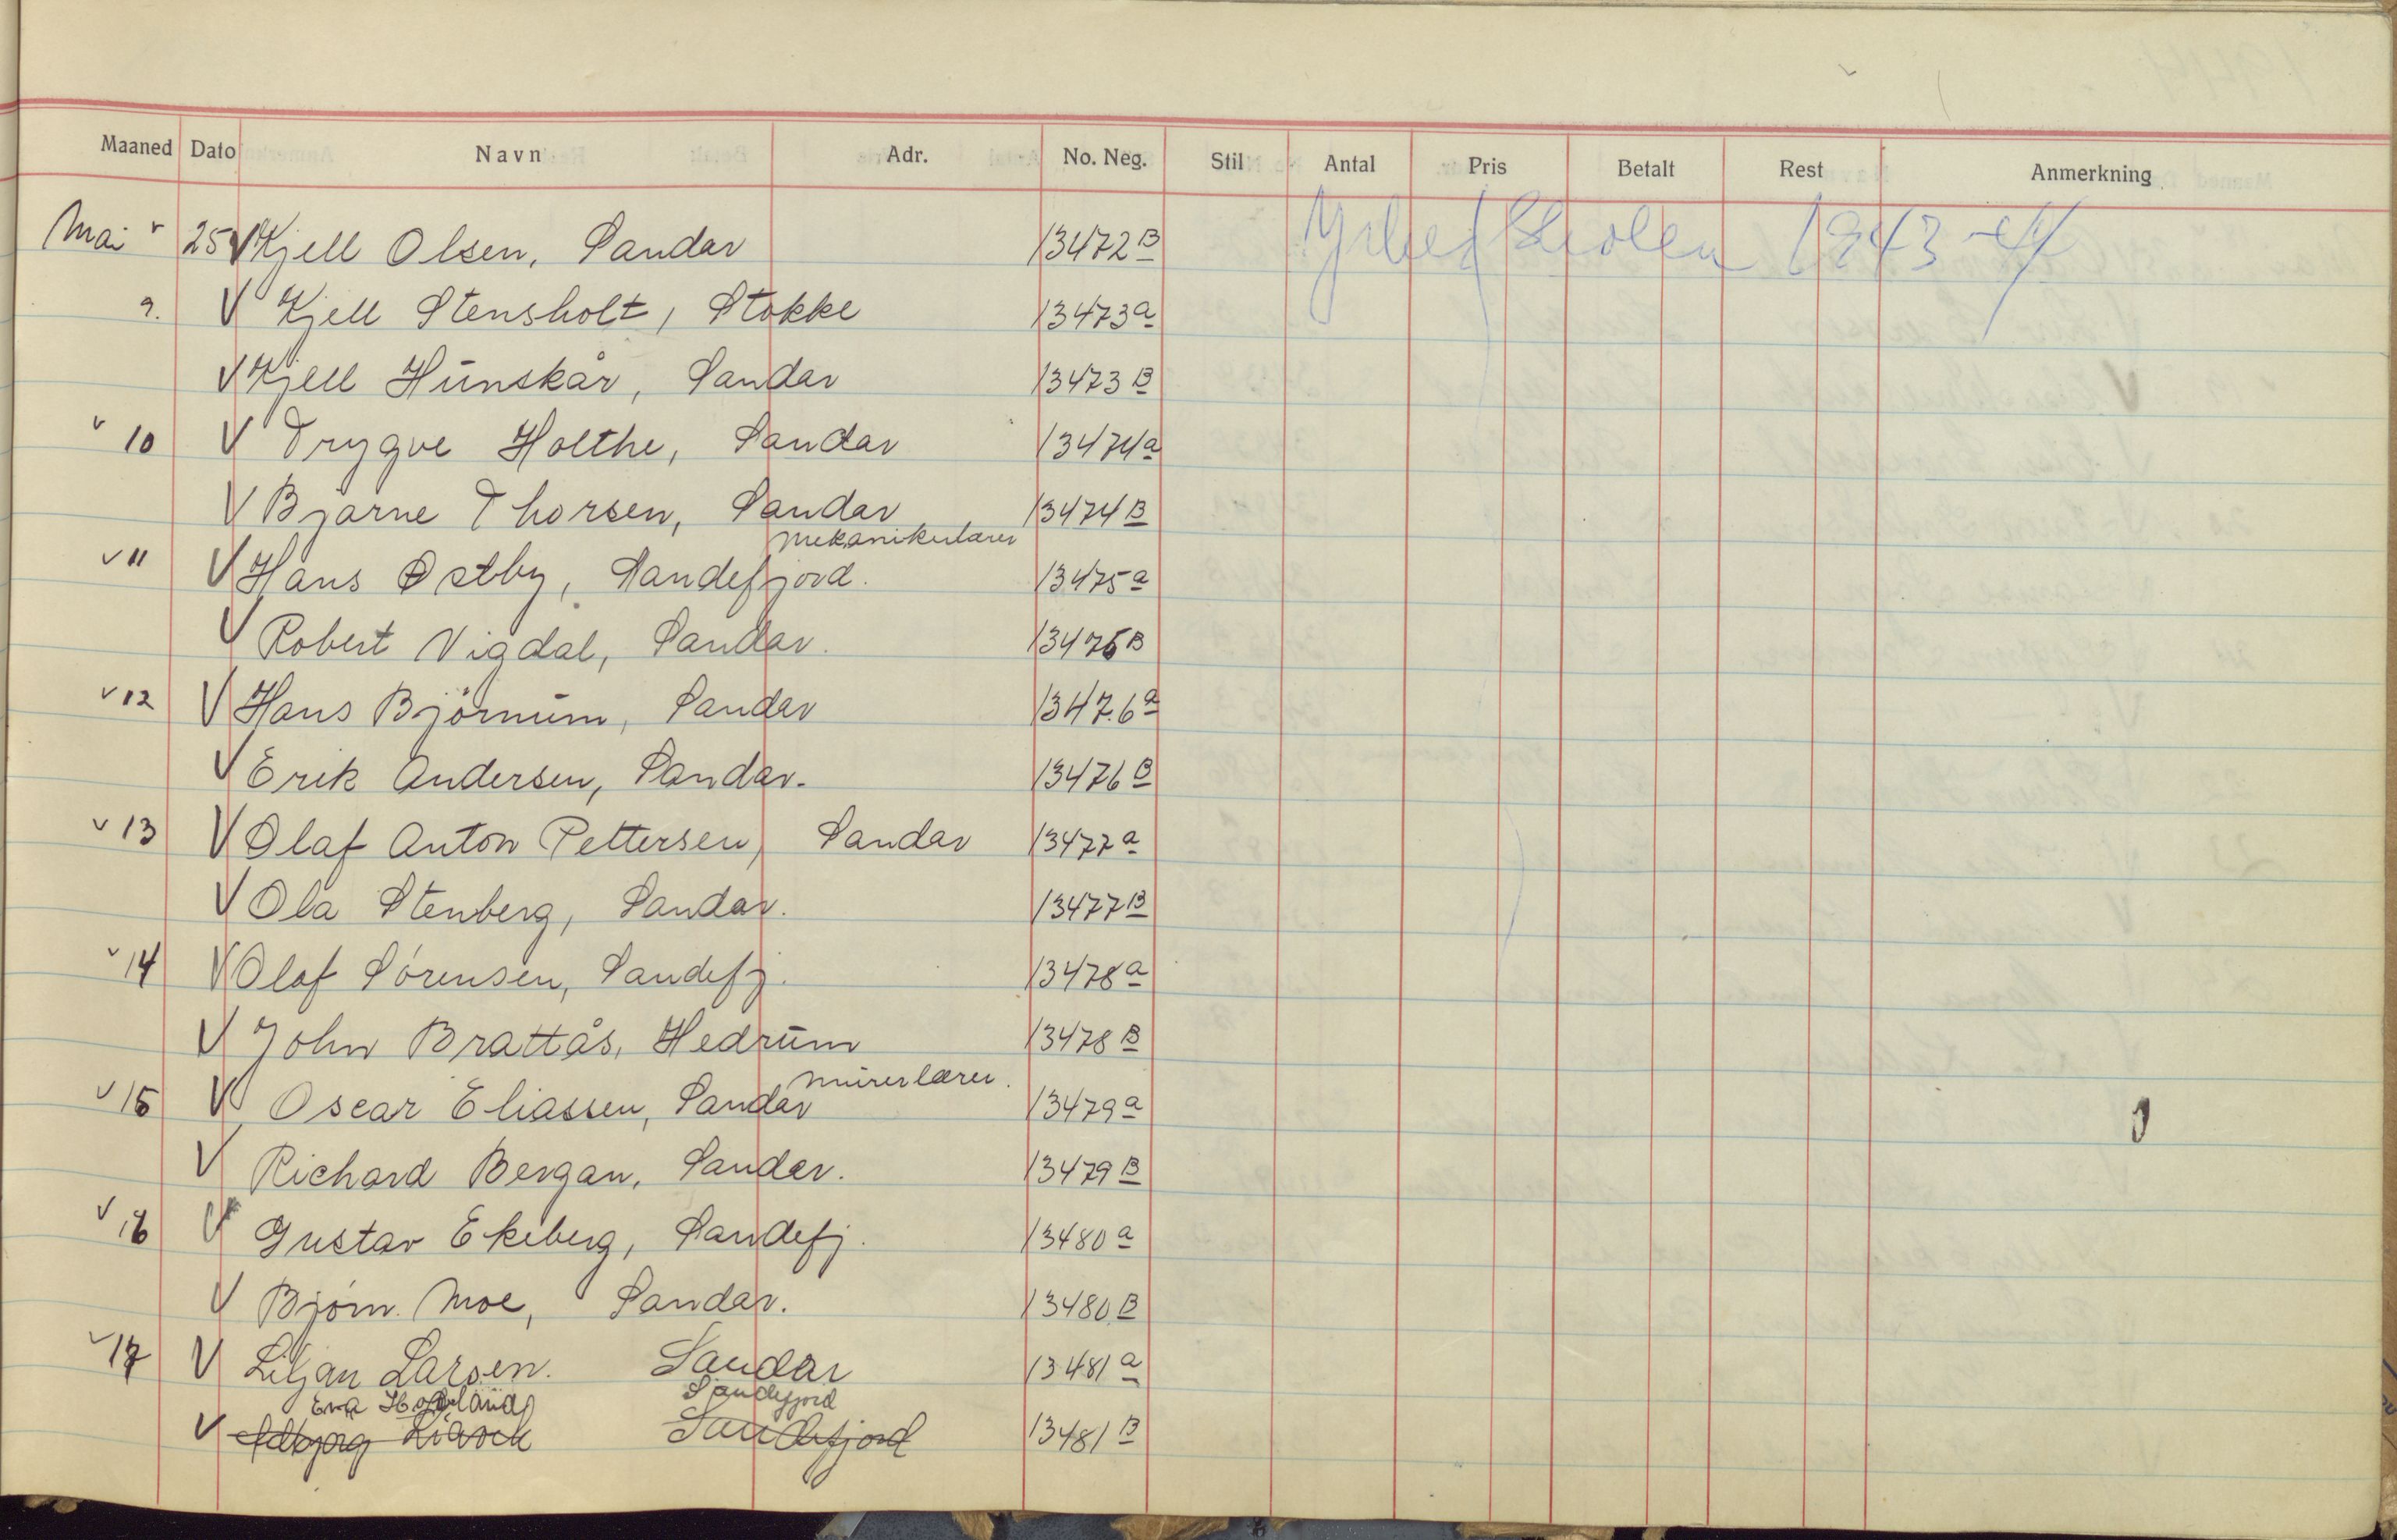 Maaned Dato Navn Adr. No. Neg. Stil Antal Pris Betalt Rest Anmerkning
Mai v 25 V Kjell Olsen, Sandar 13472 B Yrkesskolen 1943-44
9. V Kjell Stensholt, Stokke 13473 a
V Kjell Hunskår, Sandar 13473 B
v 10 V Trygve Holthe, Sandar 13474 a
V Bjarne Thorsen, Sandar 13474 B
mekanikerlærer
v 11 V Hans Østby, Sandefjord. 13475 a
V Robert Vigdal, Sandar. 13475 B
v 12 V Hans Björnum, Sandar 1347.6 a
V Erik Andersen, Sandar. 13476 B
v 13 V Olaf Anton Pettersen, Sandar 13477 a
V Ola Stenberg, Sandar. 13477 B
v 14 V Olaf Sörensen, Sandefj. 13478 a
V John Brattås, Hedrum 13478 B
murerlærer.
v 15 V Oscar Eliassen, Sandar 13479 a
V Richard Bergan, Sandar. 13479 B
v 16 V Gustav Ekeberg, Sandefj. 13480 a
V Bjørn Moe, Sandar. 13480 B
v 17 V Liljan Larsen. Sandar 13481 a
Eva Sandefjord
V Sandefjord 13481 B